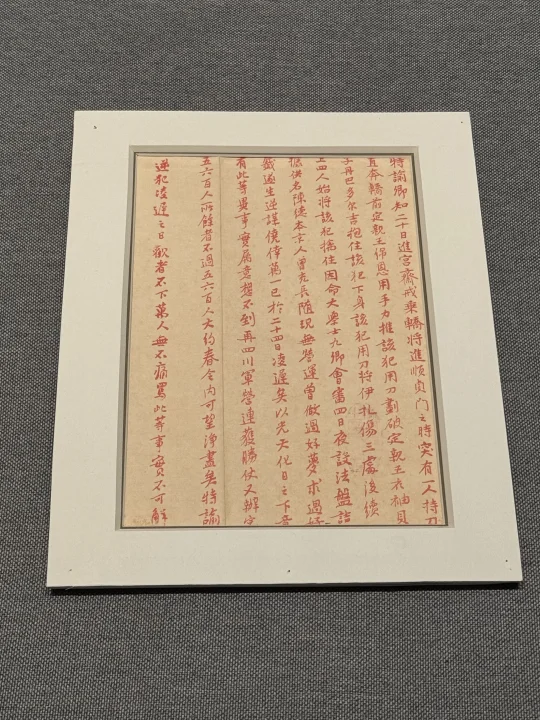 特諭卿知二十日進宮齋戒乘轎將進順貞门之時突有一人持刀
直奔轎前定親王綿恩用手力推該犯用刀劃破定親王衣袖貝
子丹巴多尔吉抱住該犯下身該犯用刀將伊扎傷三處後續
上四人始將該犯擒住因命大學士九卿會審四日夜設法盤詰
據供名陳德本京人曾充長隨現無營運曾做過好夢求過好
籤遂生逆謀僥倖萬一已於二十四日凌遲矣以光天化日之下竟
有此等異事實屬意想不到再四川軍營連獲勝仗又辦完
五六百人所餘者不過五六百人大約春令内可望淨盡矣特諭
逆犯凌遲之日觀者不下萬人無不痛罵此等事實不可解